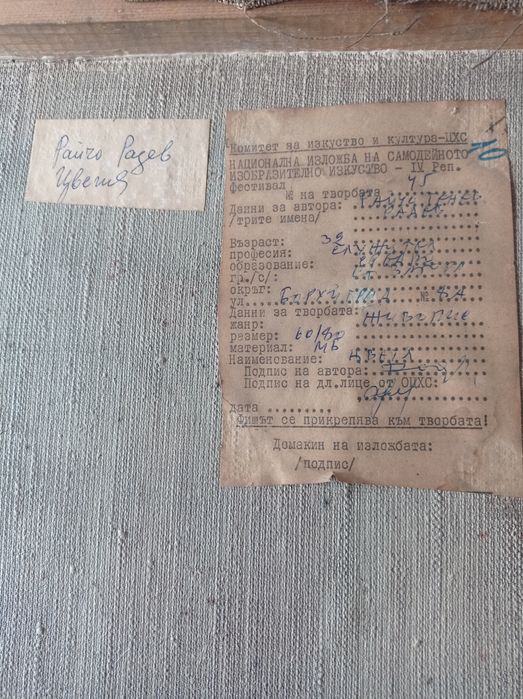 Райчо Радев
Цветя
Комитет за изкуство и култура-ЦХС
НАЦИОНАЛНА ИЗЛОЖБА НА САМОДЕЙНОТО
ИЗОБРАЗИТЕЛНО ИЗКУСТВО - IV Реп.
фестивал
№ на творбата 45
Данни за автора: РАЙЧО
/трите имена/ РАДЕВ
Възраст:
професия: СЛУЖИТЕЛ
образование:
гр./с/: СТ. ЗАГОРА
окръг:
ул. № 8А
Данни за творбата:
жанр: ЖИВОПИС
размер: 60/80
материал: МБ
Наименование: ЦВЕТЯ
Подпис на автора:
Подпис на дл.лице от ОЦХС:
дата
Фишът се прикрепява към творбата!
Домакин на изложбата:
/подпис/